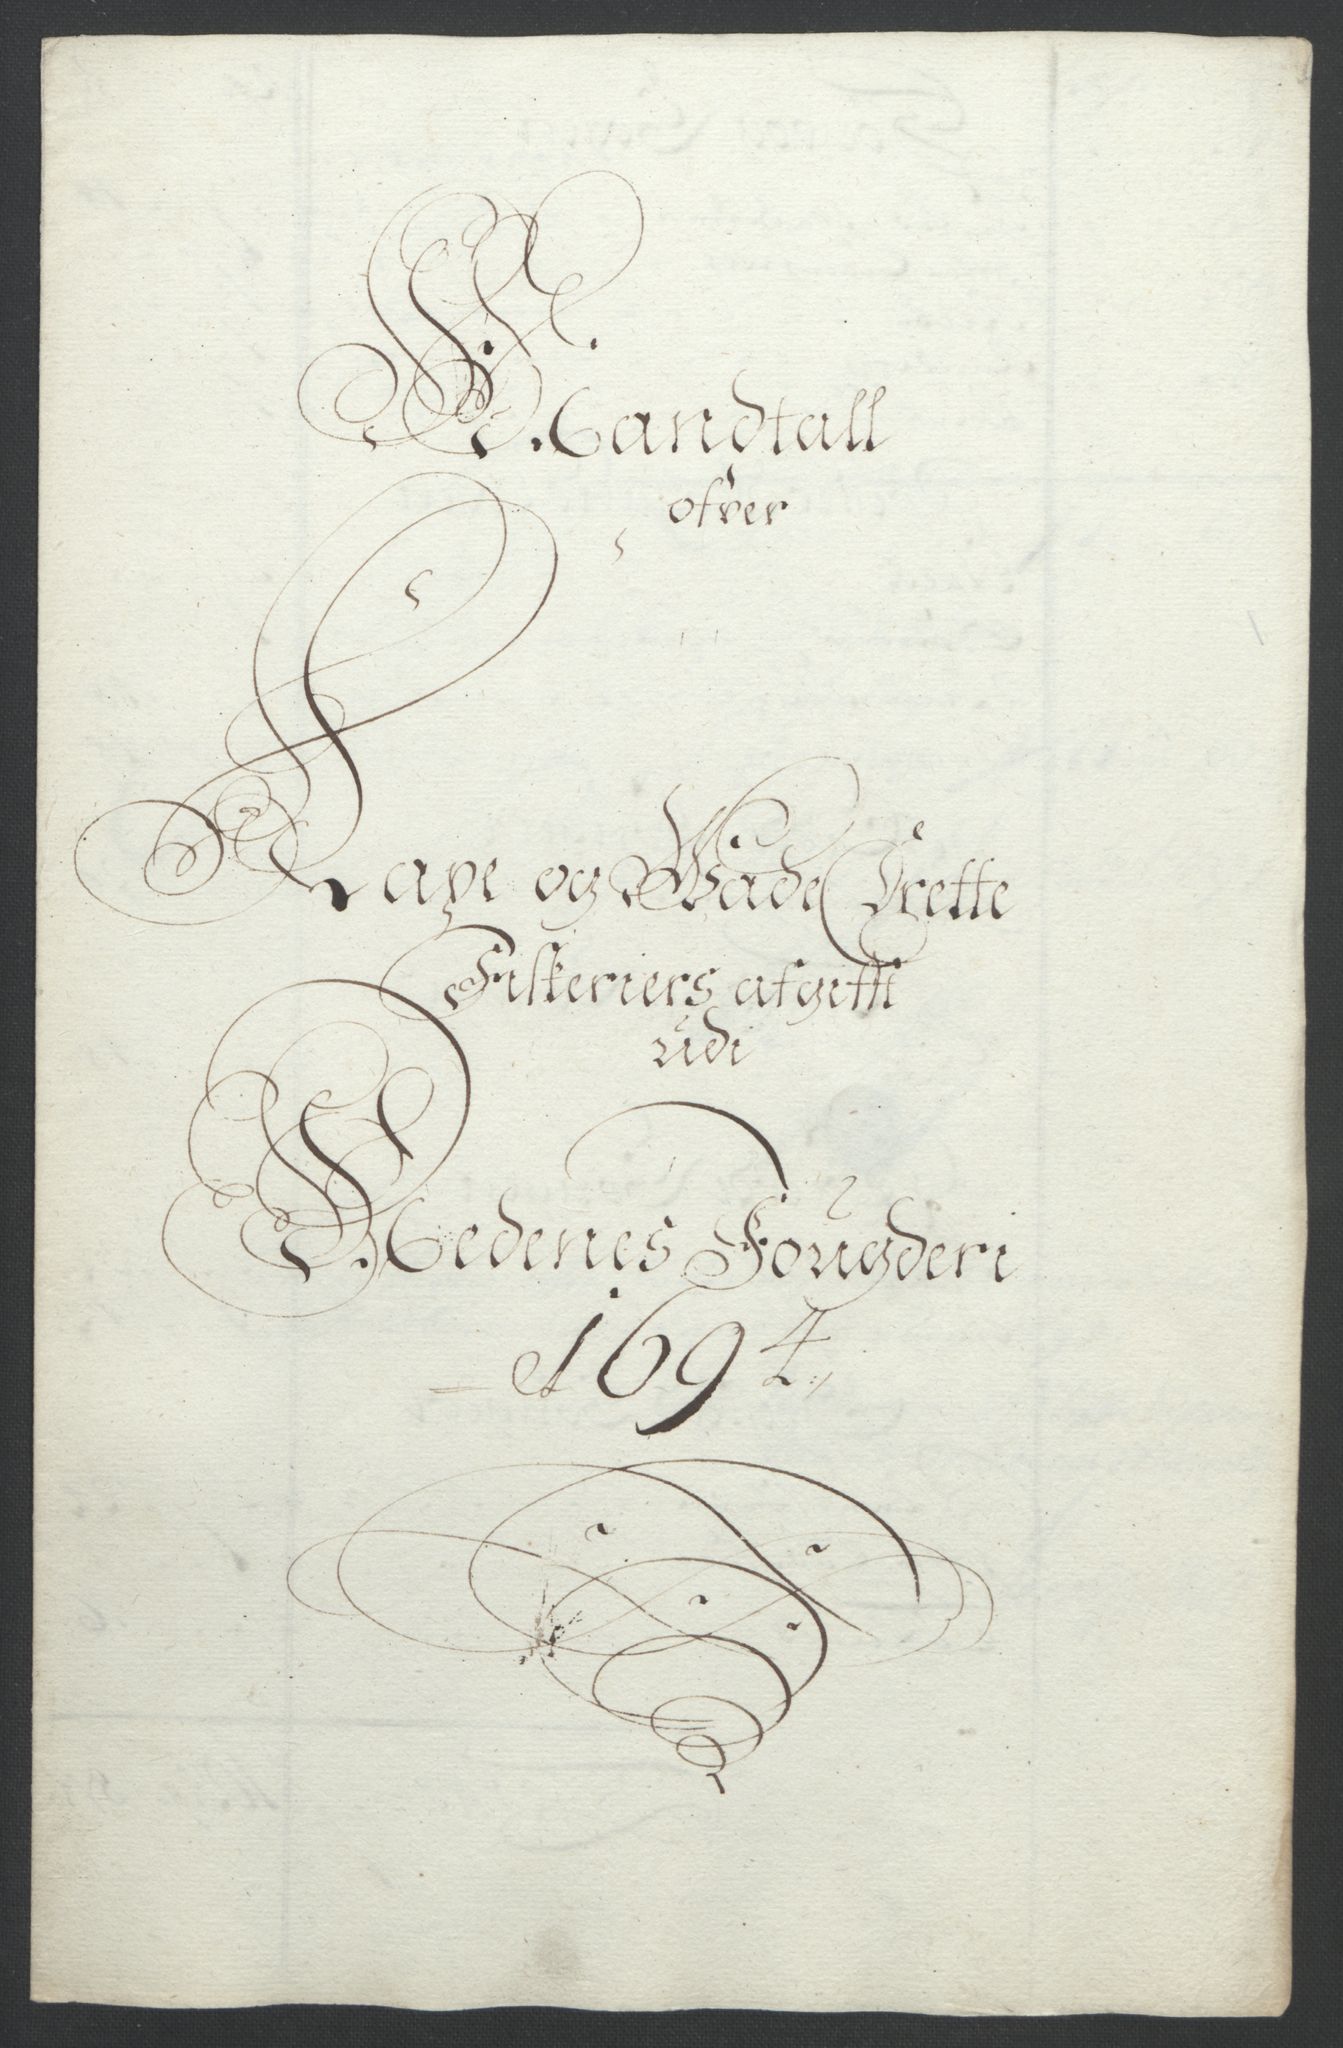 Mandtall
ofver
Laxe og Wade Drette
Fiskeriers afgift
udi
Nedenes Fougderi
1694